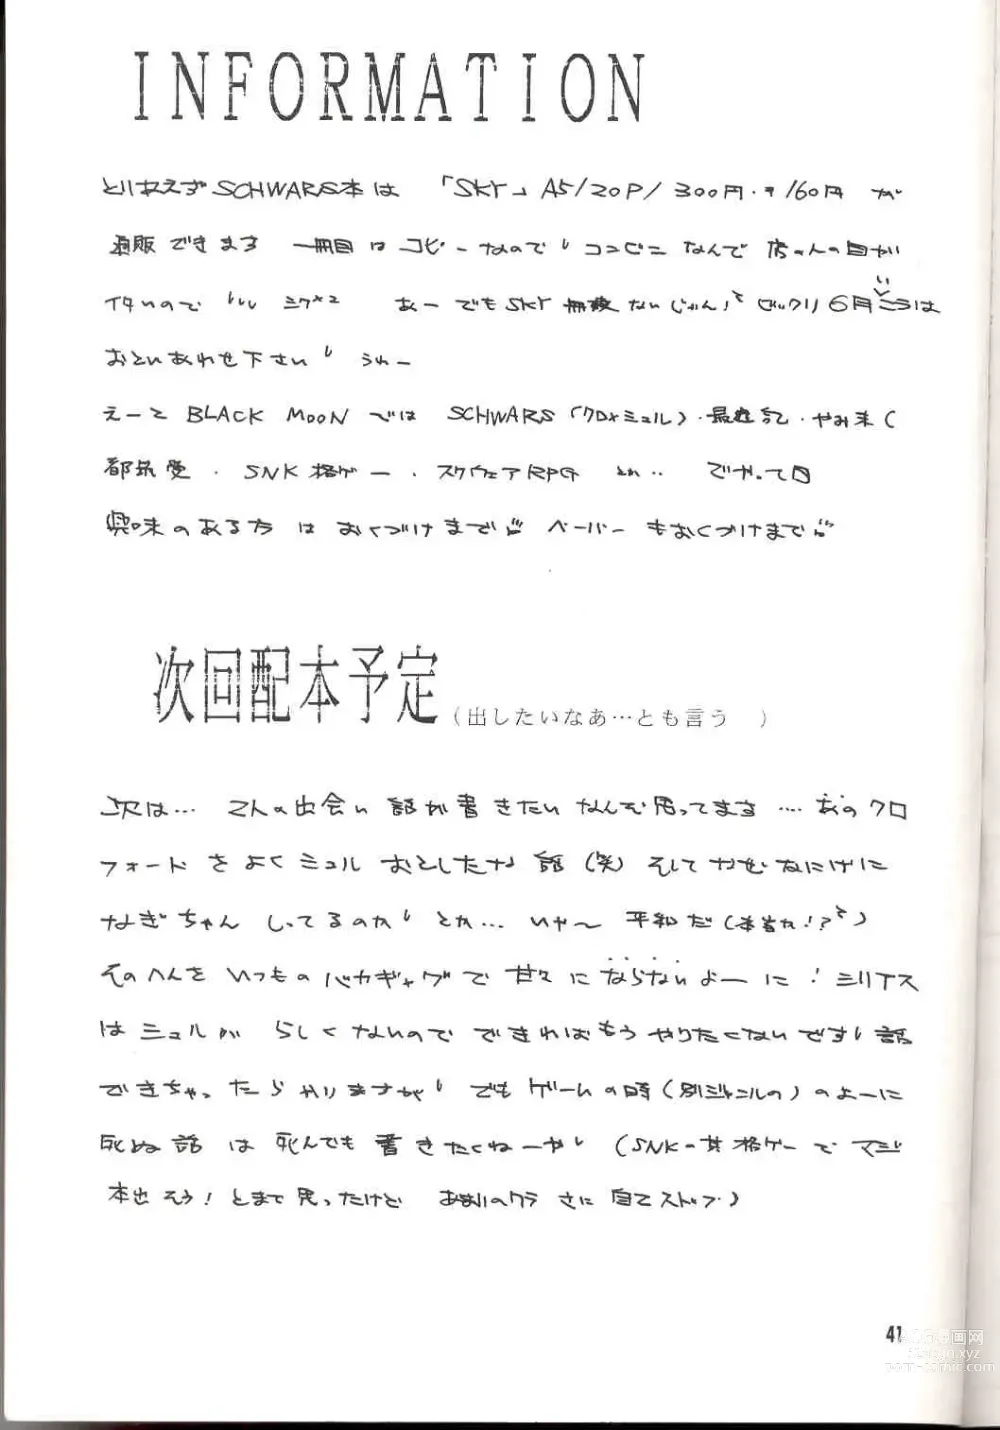 INFORMATION
とりあえずSCHWARS本は 「SKY」A5/20P/300円・〒160円 が
通販できます 一冊目はコピーなので コンビニなんで 店の人の目が
イタいので あーでもSKY 無ないじゃん! ビックリ 6月いこうは
おといあわせ下さい うれー
えーと BLACK MOONでは SCHWARS(クロ×ミュル)・最遊記・やみ末(
都筑受・SNK格ゲー・スクウェアRPG とか‥ でやってり
興味のある方は おくづけまで ペーパーもおくづけまで
次回配本予定(出したいなあ…とも言う )
次は… 2人の出会い 話が書きたい なんぞ思ってます‥‥ あのクロ
フォードをよくミュルおとしたな 話(笑) そして なにげに
なぎちゃん しってるのか とか… いや〜 平和だ(本当か!?)
そのへんを いつものバカギャグで 甘々に ならないよーに! シリアス
はミュルが らしくないので できればもう やりたくないです 話
できちゃったら やりますが でも ゲームの時(別ジャンルの)のよーに
死ぬ話は 死んでも 書きたくねーや (SNKの某格ゲーで マジ
本出そう!とまで思ったけど あまりのクラさに 自でストップ)
41